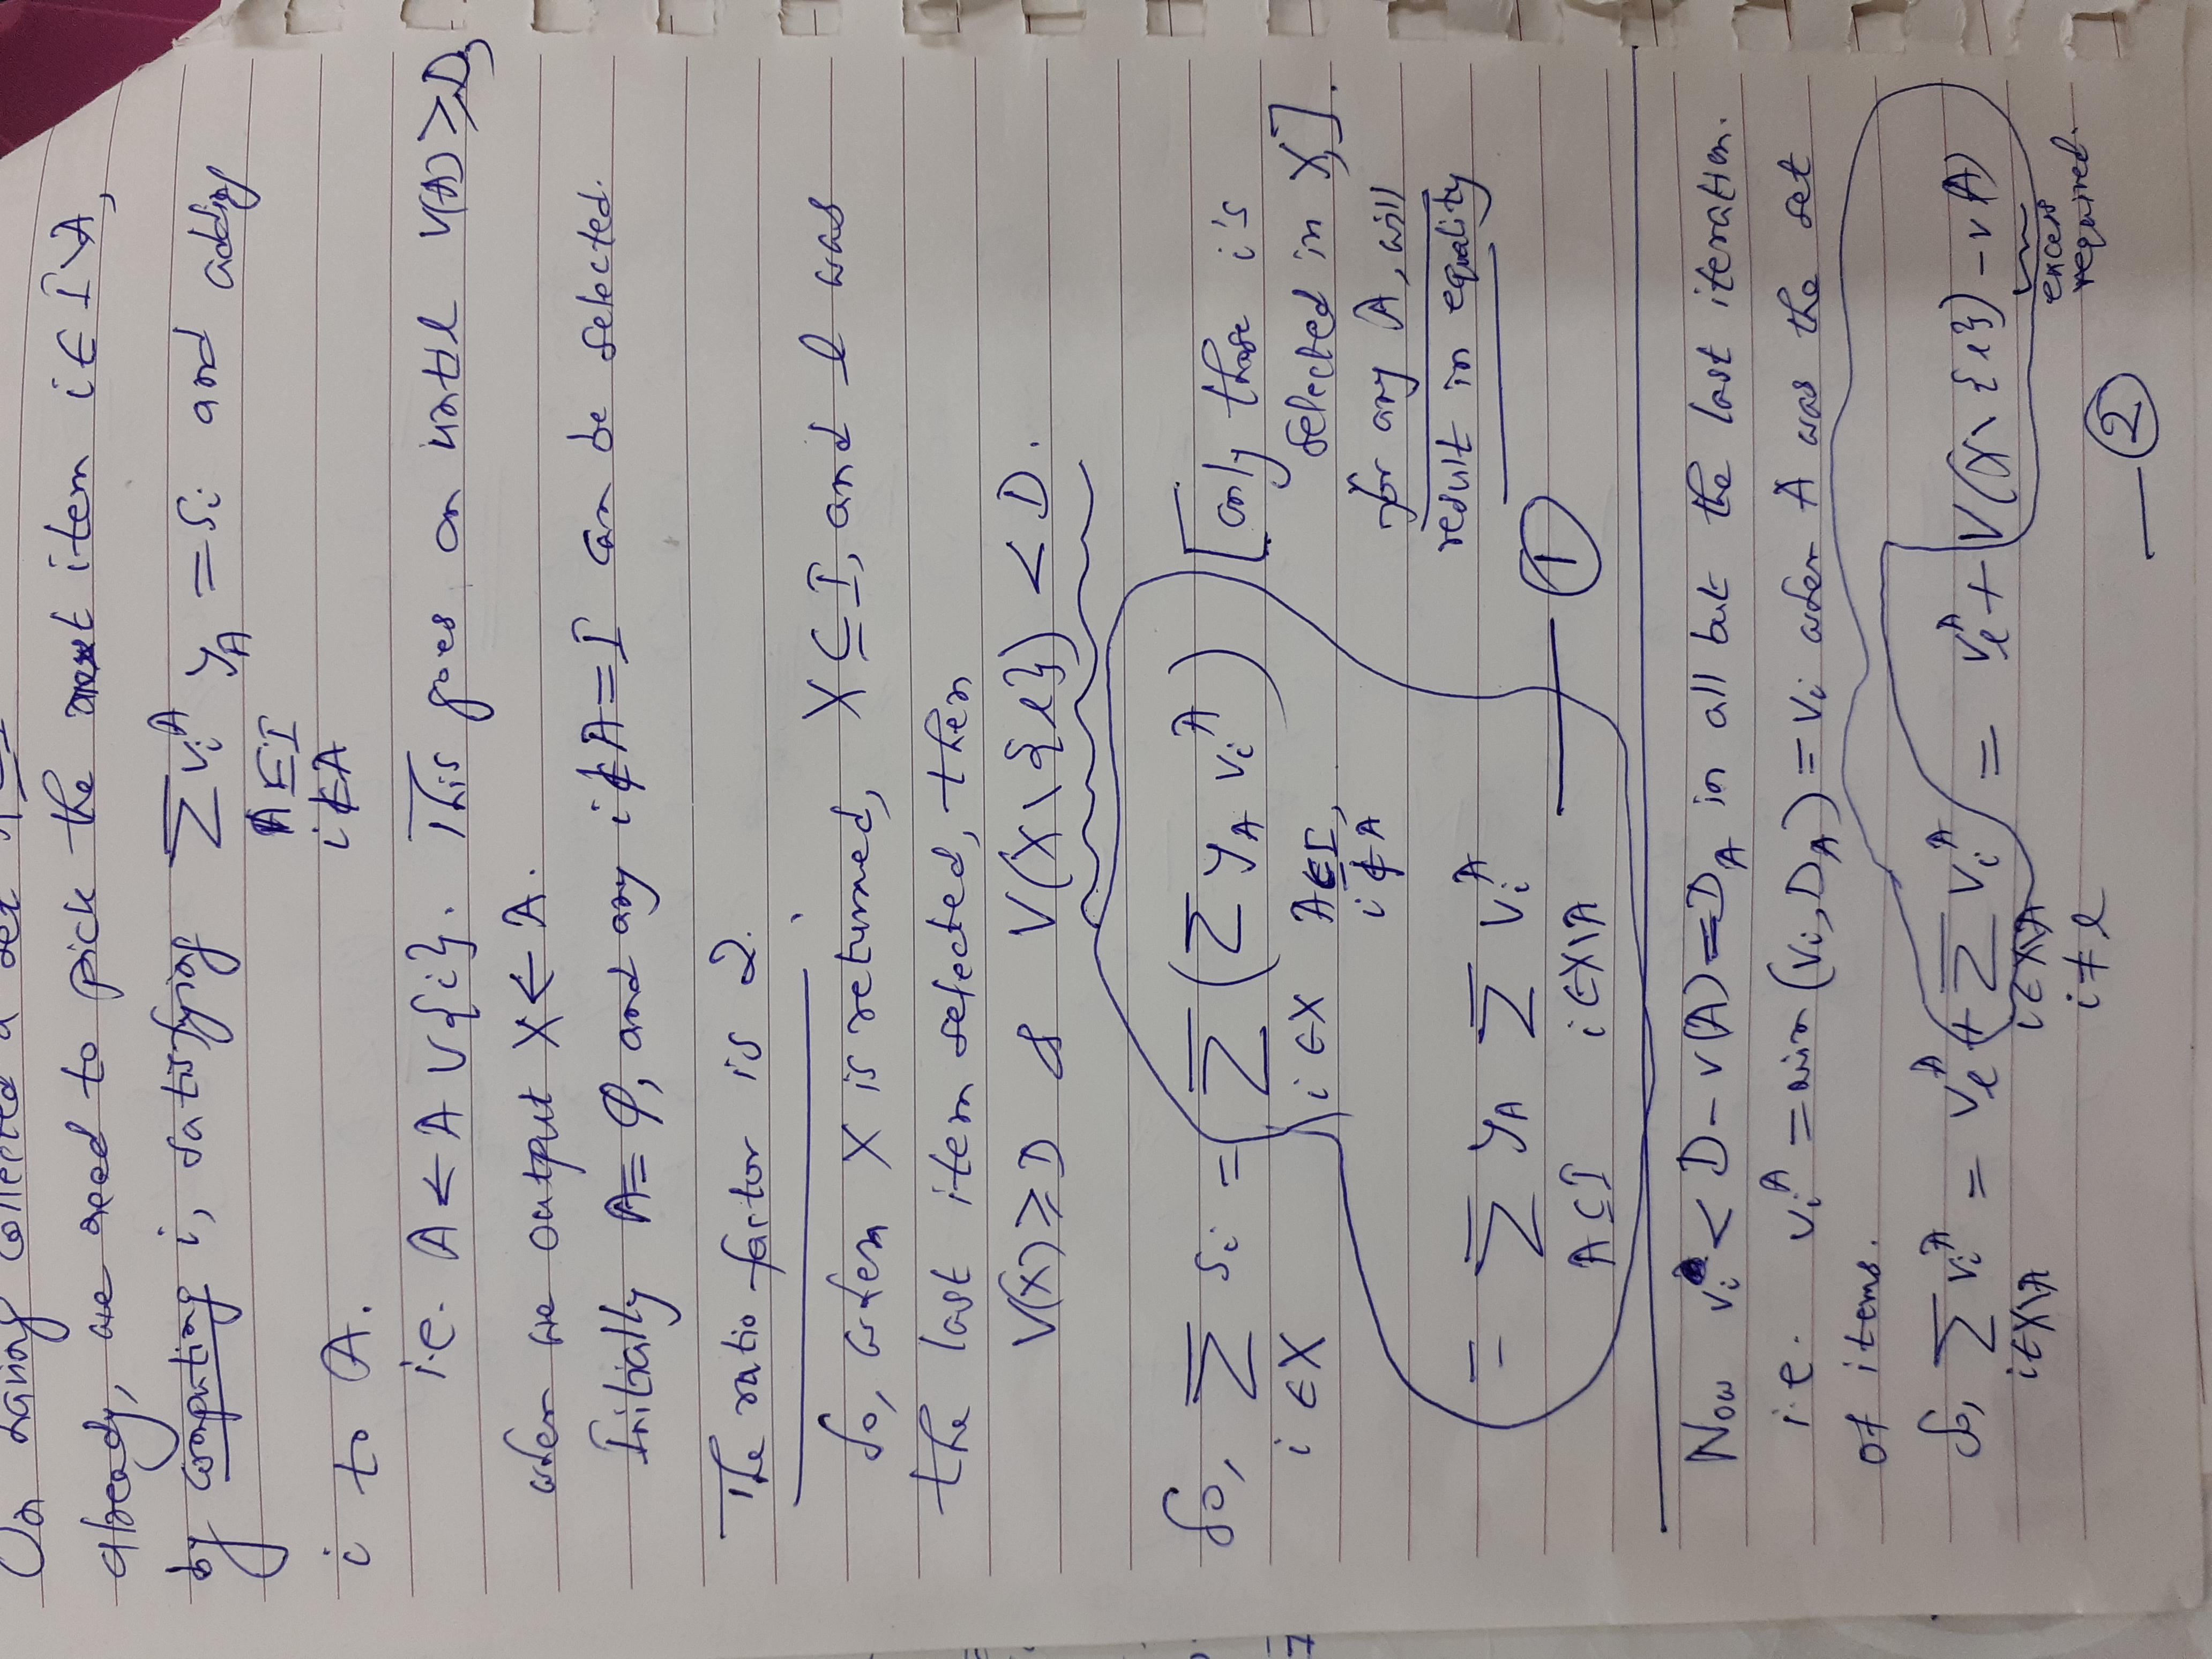 On having collected a set A ⊆ I
already, we need to pick the next item i ∈ I \ A,
by computing i, satisfying Σ vᵢᴬ y_A = sᵢ and adding
A ⊆ I
i ∉ A
i to A.
i.e. A ← A ∪ {i}. This goes on until V(A) ≥ D,
when we output X ← A.
Initially A = φ, and any i ∉ A = I can be selected.
The ratio factor is 2.
So, when X is returned, X ⊆ I, and l was
the last item selected, then
V(X) ≥ D & V(X \ {l}) < D.
So, Σ sᵢ = Σ ( Σ y_A vᵢᴬ ) [only those i's
i ∈ X i ∈ X A ⊆ I, selected in X,
i ∉ A for any A, will
= Σ y_A Σ vᵢᴬ result in equality].
A ⊆ I i ∈ X\A — ①
Now vᵢ < D - v(A) = D_A in all but the last iteration.
i.e. vᵢᴬ = min (vᵢ, D_A) = vᵢ when A was the set
of items.
So, Σ vᵢᴬ = v_lᴬ + Σ vᵢᴬ = v_lᴬ + V(X \ {l}) - v(A)
i ∈ X\A i ∈ X\A excess
i ≠ l required.
— ②